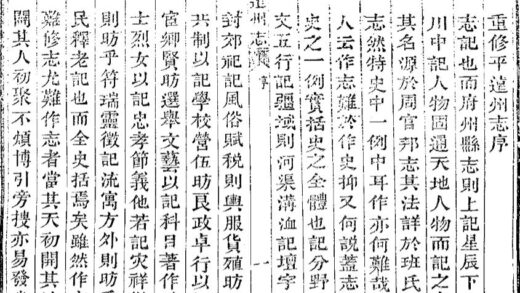 重修平遠州志序
志記也而府州縣志則上記星辰下
川中記人物固通天地人物而記之
其名源於周官邦志其法詳於班氏
志然特史中一例中耳作亦何難哉
人云作志難於作史抑又何說蓋志
史之一例實括史之全體也記分野
文五行記疆域則河渠溝洫記壇宇
州志 序 一
封郊祀記風俗賦稅則輿服貨殖昉
制以記學校營伍昉良政卓行以
宦鄉賢昉選舉文藝以記科目著作
士烈女以記忠孝節義他若記災祥
則昉乎符瑞靈徵記流寓方外則昉
民釋老記也而全史括焉矣雖然作
難修志尤難作志者當其天初開其
闢其人初聚不煩博引旁搜亦易發